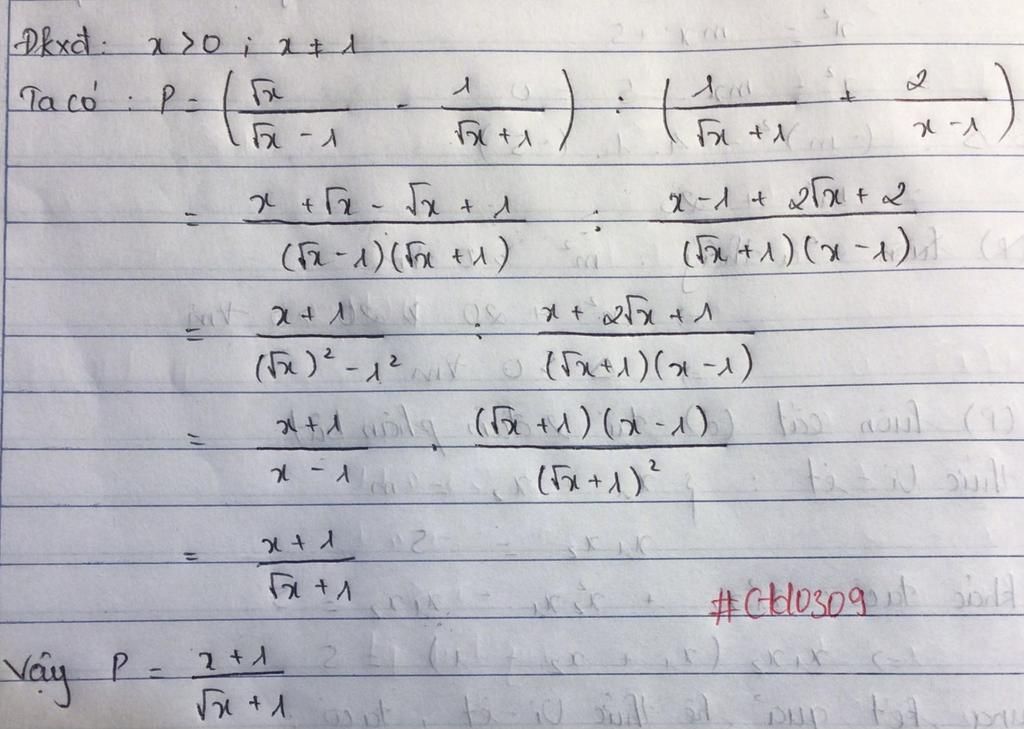 Đkxđ: x > 0 ; x ≠ 1
Ta có: P = (√x / (√x - 1) - 1 / (√x + 1)) : (1 / (√x + 1) + 2 / (x - 1))
= (x + √x - √x + 1) / ((√x - 1)(√x + 1)) : (x - 1 + 2√x + 2) / ((√x + 1)(x - 1))
= (x + 1) / ((√x)² - 1²) : (x + 2√x + 1) / ((√x + 1)(x - 1))
= (x + 1) / (x - 1) . ((√x + 1)(x - 1)) / (√x + 1)²
= (x + 1) / (√x + 1)
#Ctd0309
Vậy P = (x + 1) / (√x + 1)